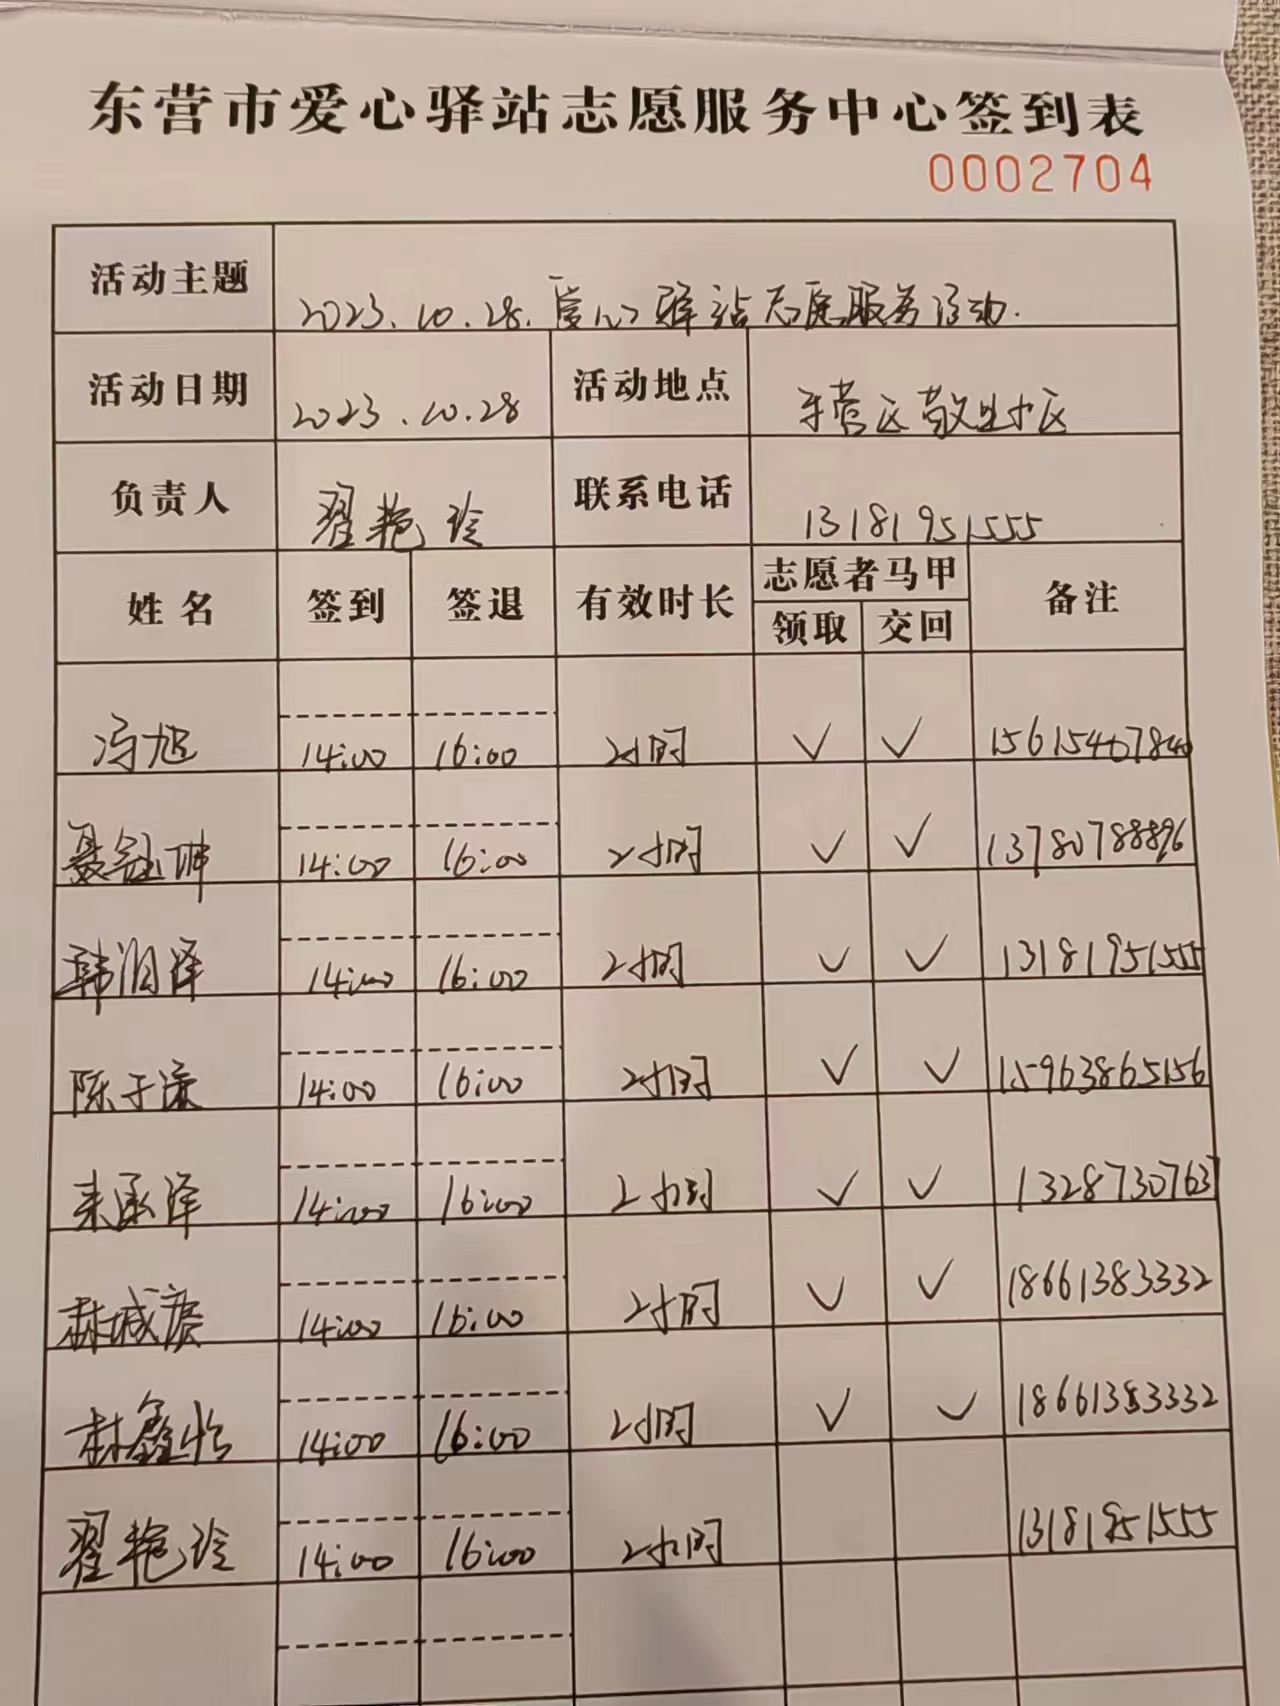 东营市爱心驿站志愿服务中心签到表
0002704
活动主题 2023.10.28.爱心驿站志愿服务活动.
活动日期 2023.10.28 活动地点 东营区敬业小区
负责人 翟艳玲 联系电话 13181951555
姓名 签到 签退 有效时长 志愿者马甲 备注
领取 交回
冯旭 14:00 16:00 2小时 ✓ ✓ 15615407840
聂钰坤 14:00 16:00 2小时 ✓ ✓ 13780788896
韩润泽 14:00 16:00 2小时 ✓ ✓ 13181951555
陈于濠 14:00 16:00 2小时 ✓ ✓ 15963865156
来承泽 14:00 16:00 2小时 ✓ ✓ 13287307637
林城赓 14:00 16:00 2小时 ✓ ✓ 18661383332
林鑫怡 14:00 16:00 2小时 ✓ ✓ 18661383332
翟艳玲 14:00 16:00 2小时 13181951555